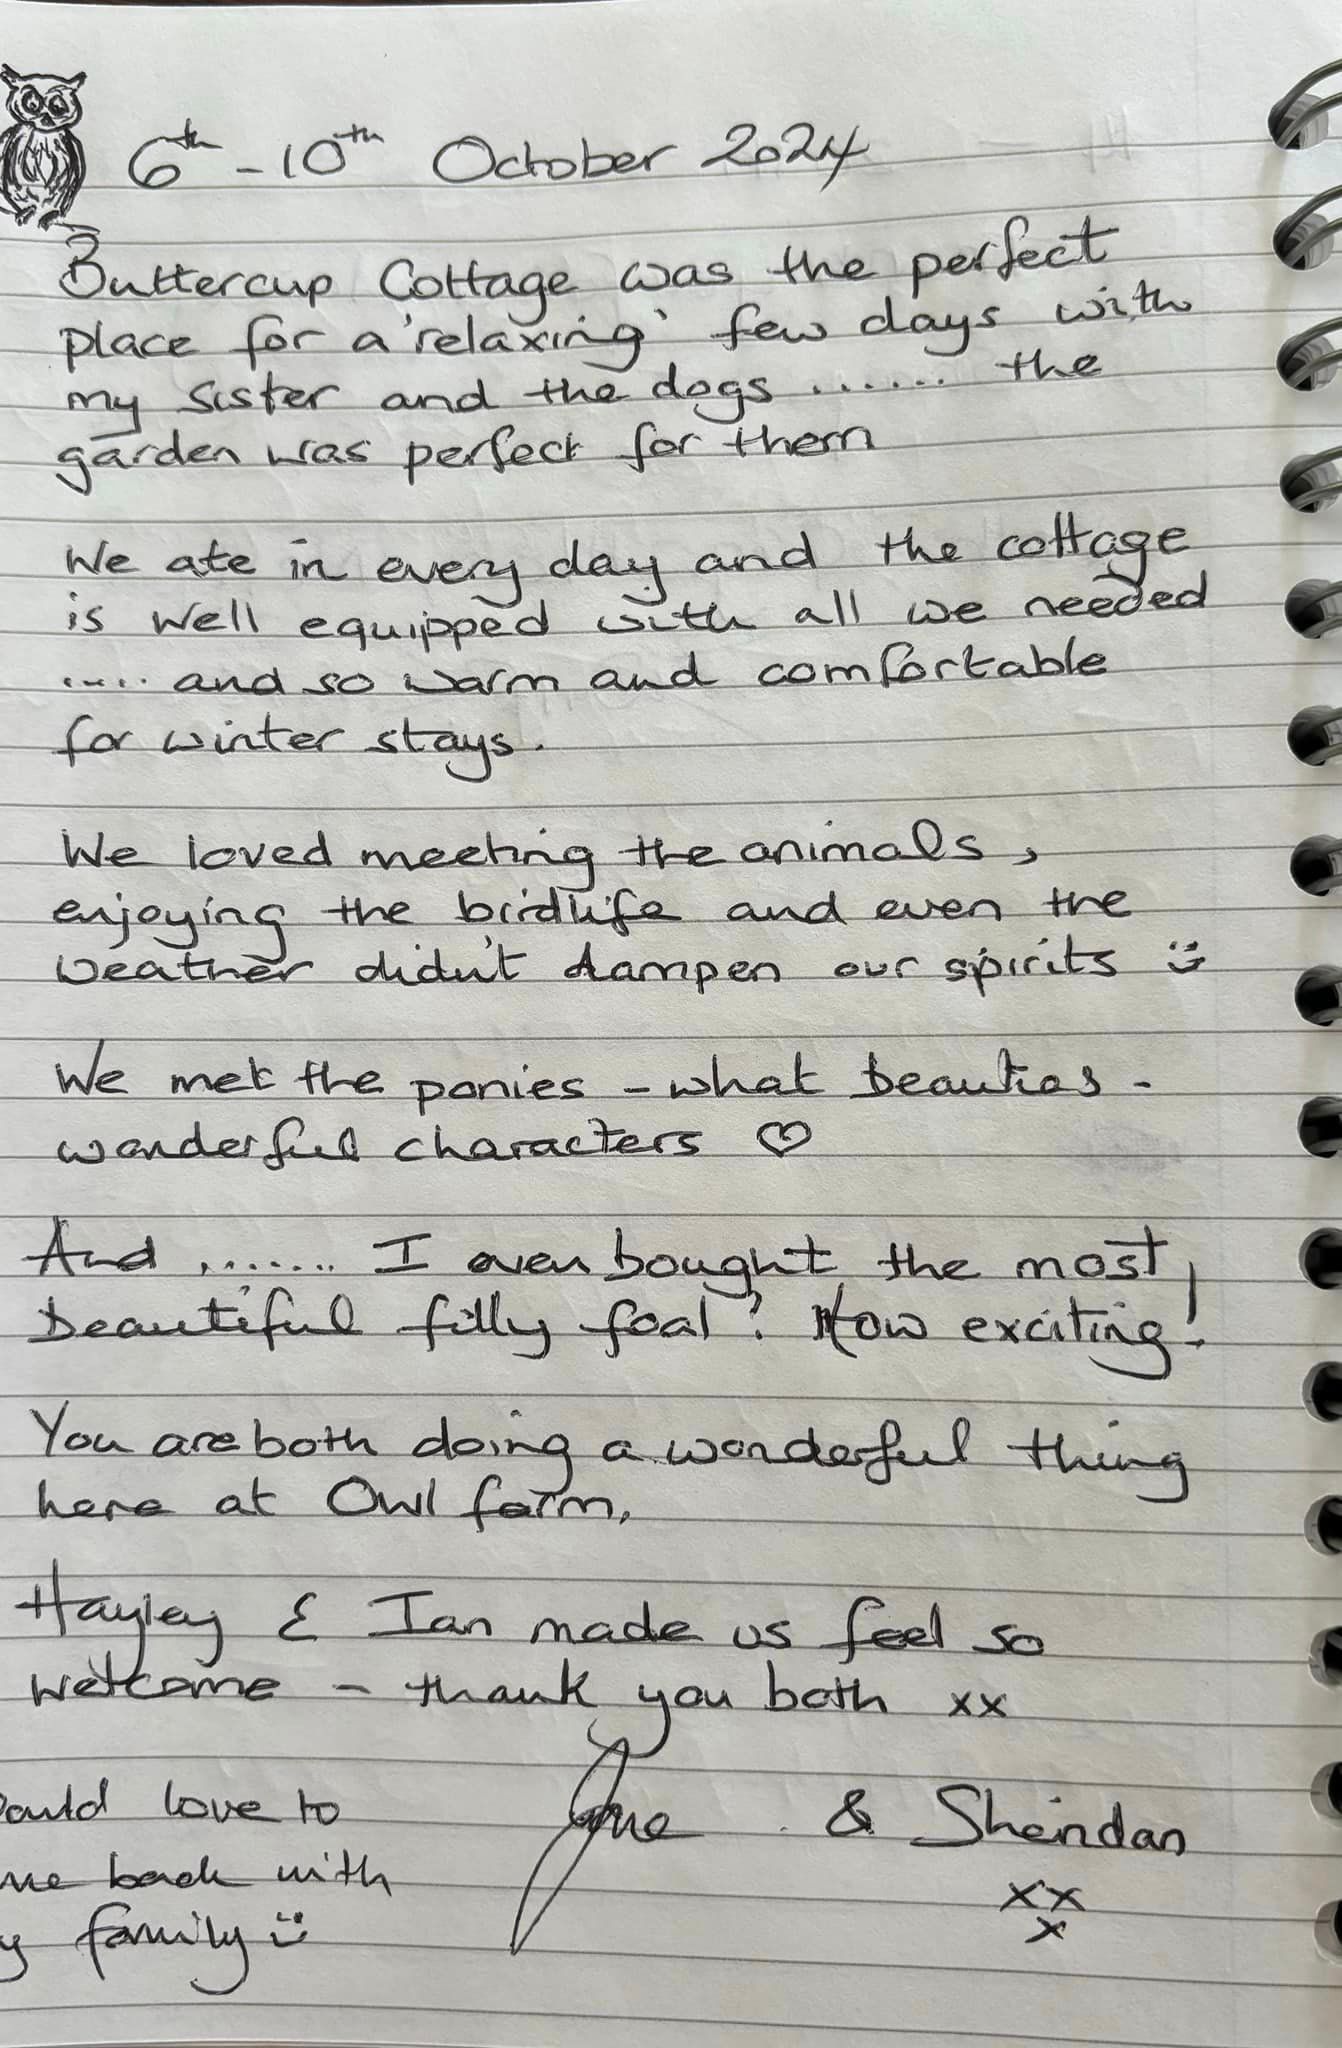 6th - 10th October 2024
Buttercup Cottage was the perfect
place for a 'relaxing' few days with
my sister and the dogs ....... the
garden was perfect for them
We ate in every day and the cottage
is well equipped with all we needed
..... and so warm and comfortable
for winter stays.
We loved meeting the animals,
enjoying the birdlife and even the
weather didn't dampen our spirits :)
We met the ponies - what beauties -
wonderful characters ♡
And ....... I even bought the most
beautiful filly foal! How exciting!
You are both doing a wonderful thing
here at Owl farm.
Hayley & Ian made us feel so
welcome - thank you both xx
ould love to
me back with
y family :)
& Sheridan
xx
x